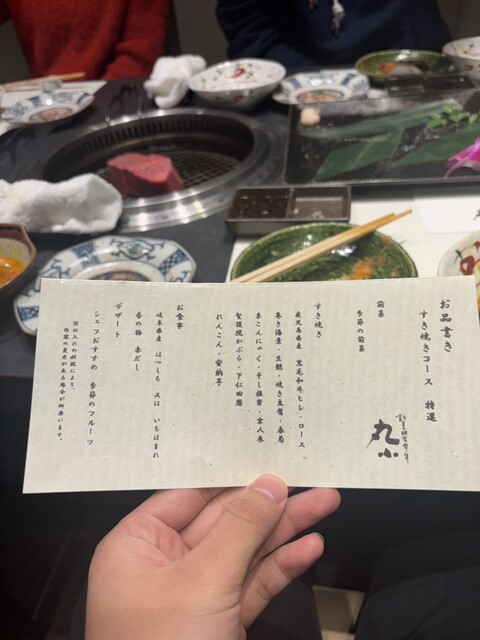 お品書き
すき焼きコース 特選
丸小
前菜
季節の前菜
すき焼き
鹿児島県産 黒毛和牛ヒレ・ロース
巻き湯葉・生麩・焼き豆腐・春菊
糸こんにゃく・干し椎茸・京人参
聖護院かぶら・下仁田葱
れんこん・安納芋
お食事
岐阜県産 はつしも 又は いちほまれ
香の物 赤だし
デザート
シェフおすすめ 季節のフルーツ
※仕入れの状況により、
内容の変更がある場合が御座います。